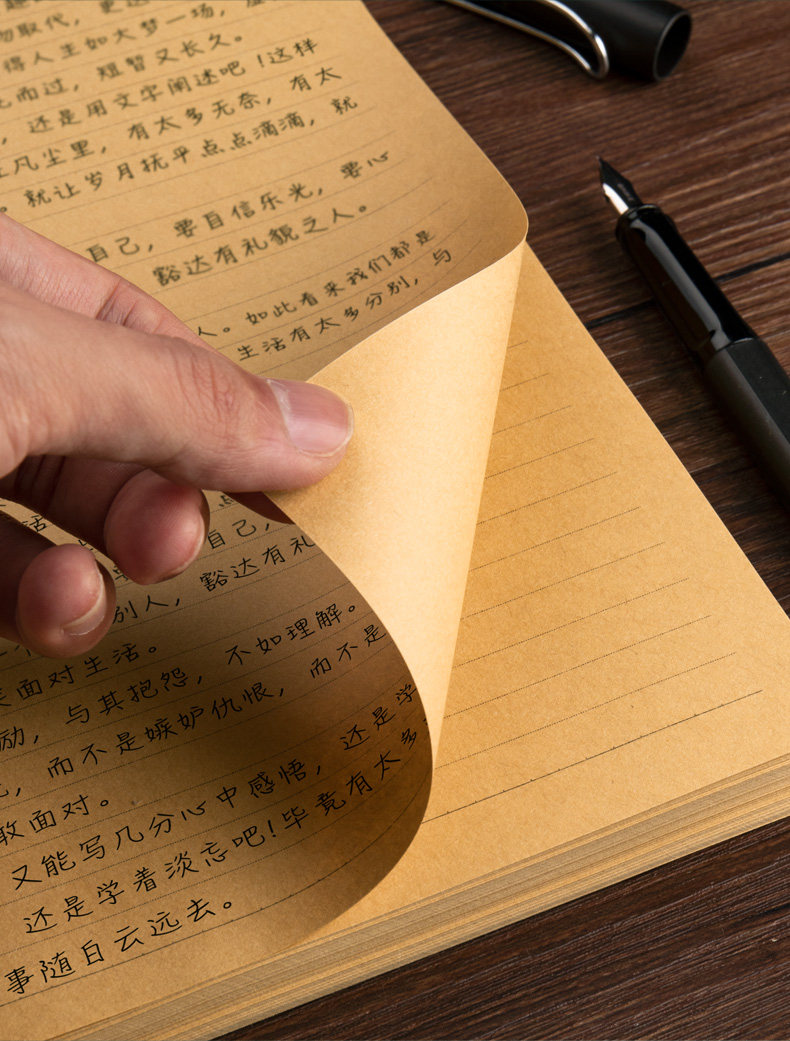 物取代，更
得人生如大梦一场，
而过，短暂又长久。
，还是用文字阐述吧！这样
凡尘里，有太多无奈，有太
。就让岁月抚平点点滴滴，就
自己，要自信乐光，要心
豁达有礼貌之人。
人。如此看来我们都是
生活有太多分别，与
点
生活
自己，
豁达有礼
别人，
面对生活。
励，与其抱怨，不如理解。
，而不是嫉妒仇恨，而不是
敢面对。
又能写几分心中感悟，还是学
还是学着淡忘吧！毕竟有太多
事随白云远去。